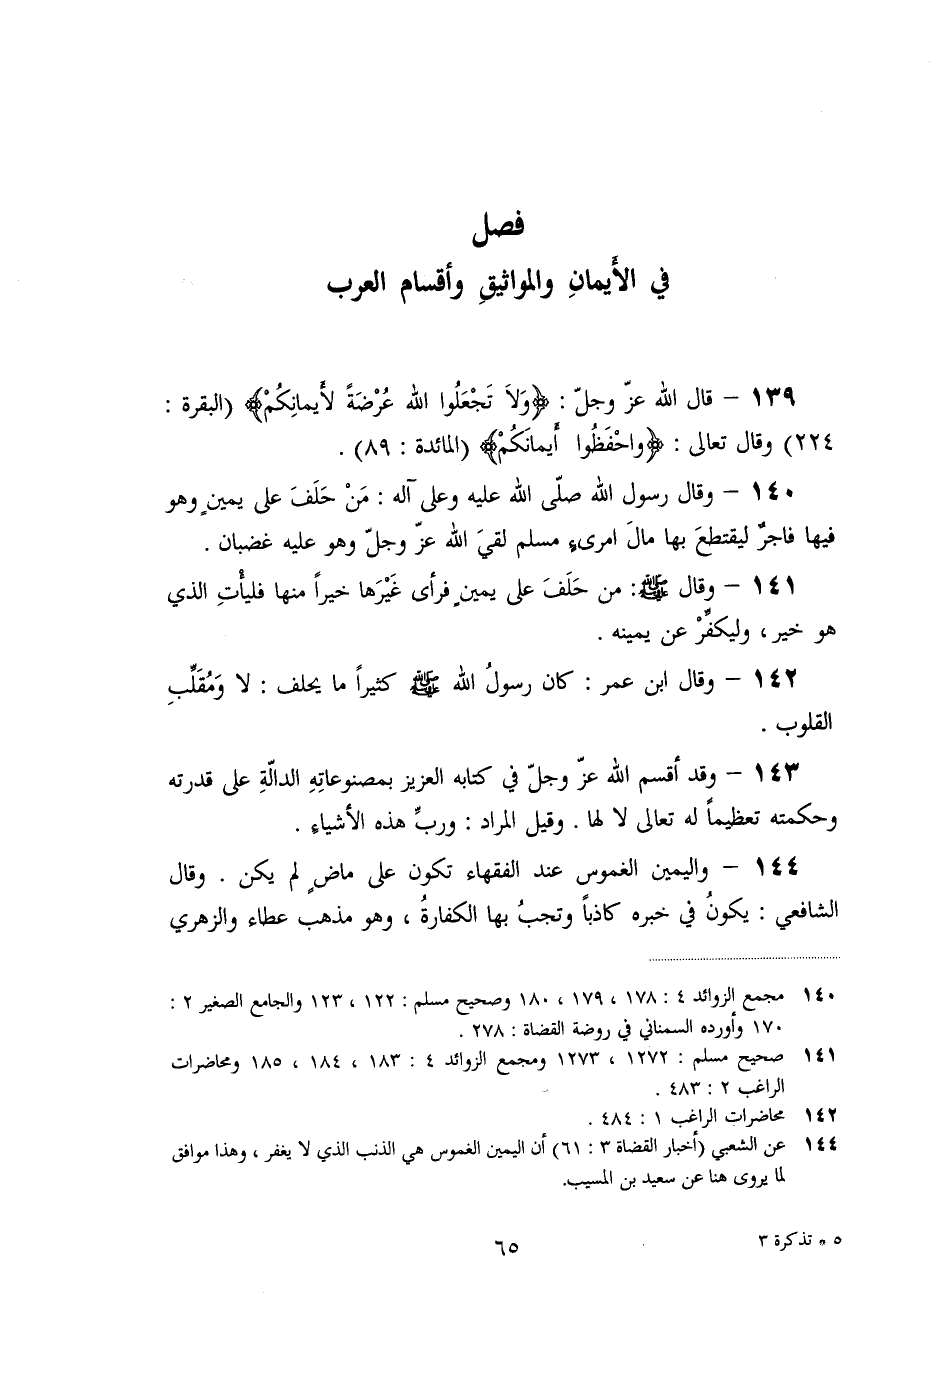 فصل
في الأَيمانِ والمواثيقِ وأقسام العرب
١٣٩ – قال الله عزّ وجلّ : ﴿وَلاَ تَجْعَلُوا الله عُرْضَةً لأَيمانِكُمْ﴾ (البقرة :
٢٢٤) وقال تعالى : ﴿واحْفَظُوا أَيمانَكُمْ﴾ (المائدة : ٨٩) .
١٤٠ – وقال رسول الله صلّى الله عليه وعلى آله : مَنْ حَلَفَ على يمينٍ وهو
فيها فاجرٌ ليقتطعَ بها مالَ امرىءٍ مسلم لقيَ الله عزّ وجلّ وهو عليه غضبان .
١٤١ – وقال ﷺ: من حَلَفَ على يمينٍ فرأى غَيْرَها خيراً منها فليأْتِ الذي
هو خير ، وليكفِّرْ عن يمينه .
١٤٢ – وقال ابن عمر : كان رسولُ الله ﷺ كثيراً ما يحلف : لا وَمُقَلِّبِ
القلوب .
١٤٣ – وقد أقسم الله عزّ وجلّ في كتابه العزيز بمصنوعاتِهِ الدالّةِ على قدرته
وحكمته تعظيماً له تعالى لا لها . وقيل المراد : وربِّ هذه الأشياءِ .
١٤٤ – واليمين الغموس عند الفقهاء تكون على ماضٍ لم يكن . وقال
الشافعي : يكونُ في خبره كاذباً وتجبُ بها الكفارةُ ، وهو مذهب عطاء والزهري
١٤٠ مجمع الزوائد ٤ : ١٧٨ ، ١٧٩ ، ١٨٠ وصحيح مسلم : ١٢٢ ، ١٢٣ والجامع الصغير ٢ :
١٧٠ وأورده السمناني في روضة القضاة : ٢٧٨ .
١٤١ صحيح مسلم : ١٢٧٢ ، ١٢٧٣ ومجمع الزوائد ٤ : ١٨٣ ، ١٨٤ ، ١٨٥ ومحاضرات
الراغب ٢ : ٤٨٣ .
١٤٢ محاضرات الراغب ١ : ٤٨٤ .
١٤٤ عن الشعبي (أخبار القضاة ٣ : ٦١) أن اليمين الغموس هي الذنب الذي لا يغفر ، وهذا موافق
لما يروى هنا عن سعيد بن المسيب.
٥ * تذكرة ٣
٦٥